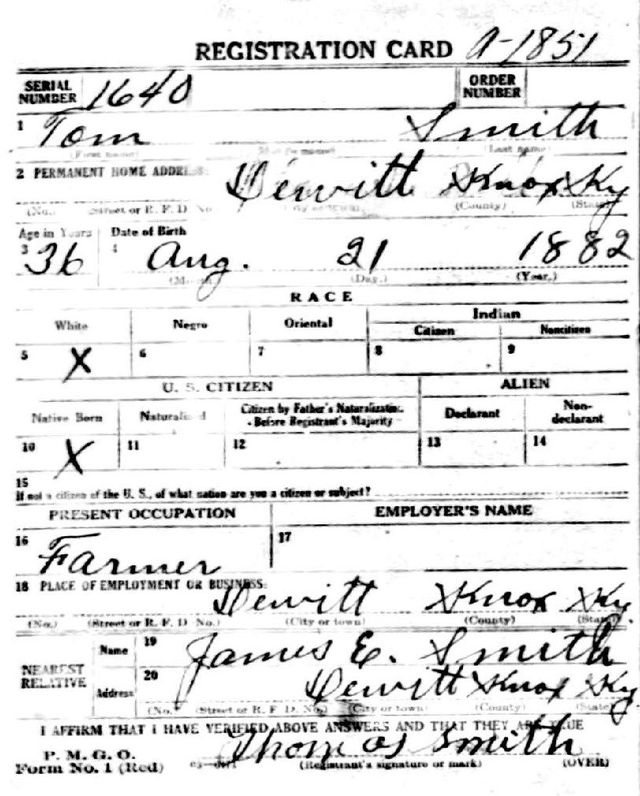 REGISTRATION CARD A-1851
SERIAL NUMBER 1640 ORDER NUMBER
1 Tom Smith
(First name) (Middle name) (Last name)
2 PERMANENT HOME ADDRESS: Dewitt Knox Ky
(No.) (Street or R. F. D. No.) (City or town) (County) (State)
Age in Years Date of Birth
3 36 4 Aug. 21 1882
(Month.) (Day.) (Year.)
RACE
White Negro Oriental Indian
Citizen Noncitizen
5 X 6 7 8 9
U. S. CITIZEN ALIEN
Native Born Naturalized Citizen by Father's Naturalization Before Registrant's Majority Declarant Non-declarant
10 X 11 12 13 14
15
If not a citizen of the U. S., of what nation are you a citizen or subject?
PRESENT OCCUPATION EMPLOYER'S NAME
16 Farmer 17
18 PLACE OF EMPLOYMENT OR BUSINESS:
Dewitt Knox Ky.
(No.) (Street or R. F. D. No.) (City or town) (County) (State)
NEAREST RELATIVE Name 19 James E. Smith
Address 20 Dewitt Knox Ky
(No.) (Street or R. F. D. No.) (City or town) (County) (State)
I AFFIRM THAT I HAVE VERIFIED ABOVE ANSWERS AND THAT THEY ARE TRUE
P. M. G. O.
Form No. 1 (Red) Thomas Smith
(Registrant's signature or mark) (OVER)